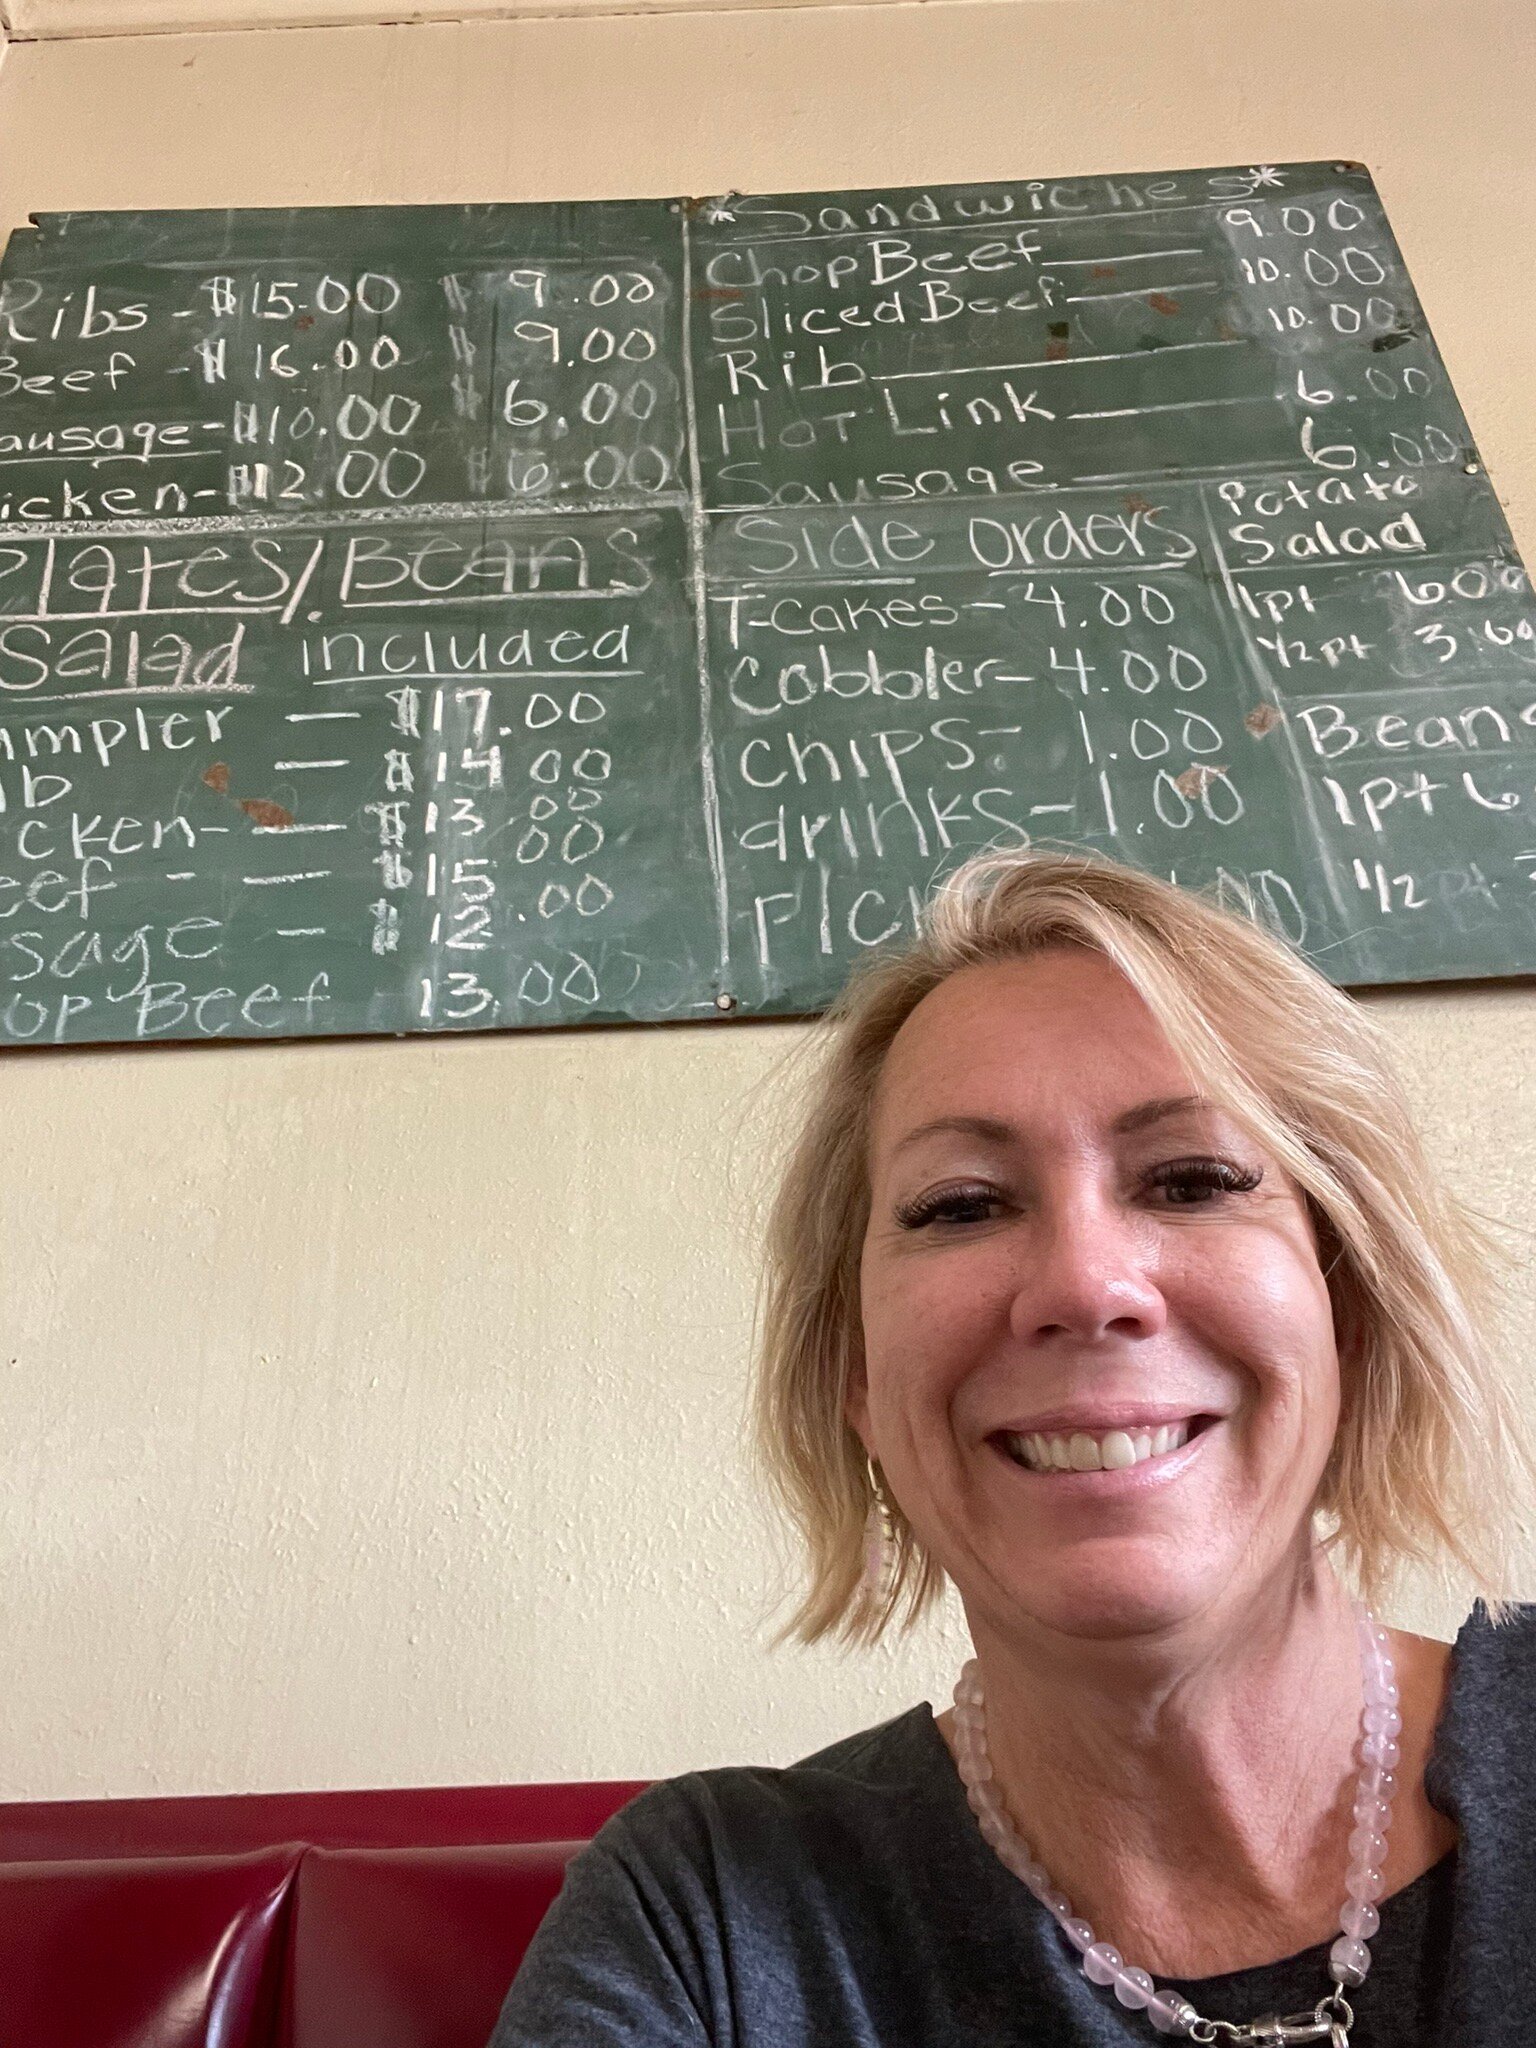 Ribs - $15.00 $ 9.00
Beef - $16.00 $ 9.00
ausage - $10.00 $ 6.00
icken - $12.00 $ 6.00
Plates/. Beans
Salad included
mpler — $17.00
ib — $14.00
cken - — $13.00
eef - — $15.00
sage — $12.00
op Beef 13.00
*Sandwiches*
Chop Beef 9.00
Sliced Beef 10.00
Rib 10.00
Hot Link 6.00
Sausage 6.00
Side orders
T-cakes - 4.00
Cobbler - 4.00
chips - 1.00
drinks - 1.00
PIC
Potato
Salad
1pt 6.00
1/2 pt 3.
Bean
1pt 6
1/2 pt